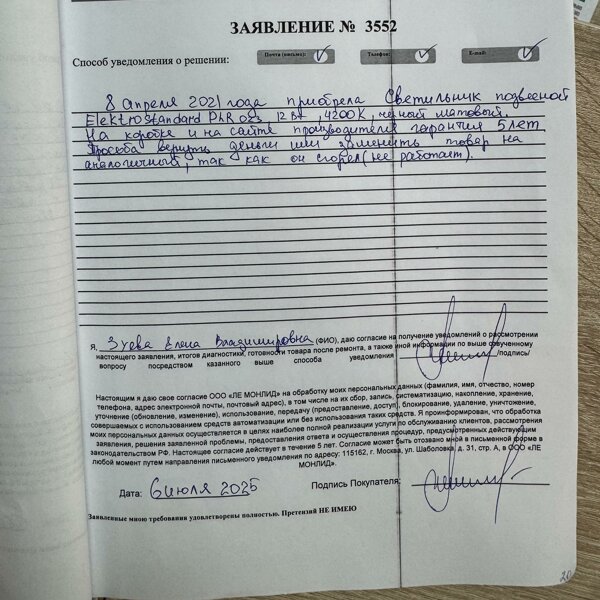 ЗАЯВЛЕНИЕ № 3552
Способ уведомления о решении: Почта (письмо): Телефон: E-mail:
8 апреля 2021 года приобрела Светильник подвесной
Elektrostandard DLR 023 12 Вт, 4200K, черный матовый.
На коробке и на сайте производителя гарантия 5 лет
Просьба вернуть деньги или заменить товар на
аналогичный, так как он сгорел (не работает).
Я, Зуева Елена Владимировна (ФИО), даю согласие на получение уведомлений о рассмотрении
настоящего заявления, итогов диагностики, готовности товара после ремонта, а также иной информации по выше озвученному
вопросу посредством указанного выше способа уведомления /подпись/
Настоящим я даю свое согласие ООО «ЛЕ МОНЛИД» на обработку моих персональных данных (фамилия, имя, отчество, номер
телефона, адрес электронной почты, почтовый адрес), в том числе на их сбор, запись, систематизацию, накопление, хранение,
уточнение (обновление, изменение), использование, передачу (предоставление, доступ), блокирование, удаление, уничтожение,
совершаемых с использованием средств автоматизации или без использования таких средств. Я проинформирован, что обработка
моих персональных данных осуществляется в целях наиболее полной реализации услуги по обслуживанию клиентов, рассмотрения
заявления, решения заявленной проблемы, предоставления ответа и осуществления процедур, предусмотренных действующим
законодательством РФ. Настоящее согласие действует в течение 5 лет. Согласие может быть отозвано мной в письменной форме в
любой момент путем направления письменного уведомления по адресу: 115162, г. Москва, ул. Шаболовка, д. 31, стр. А, в ООО «ЛЕ
МОНЛИД».
Дата: 6 июля 2025 Подпись Покупателя:
Заявленные мною требования удовлетворены полностью. Претензий НЕ ИМЕЮ
20